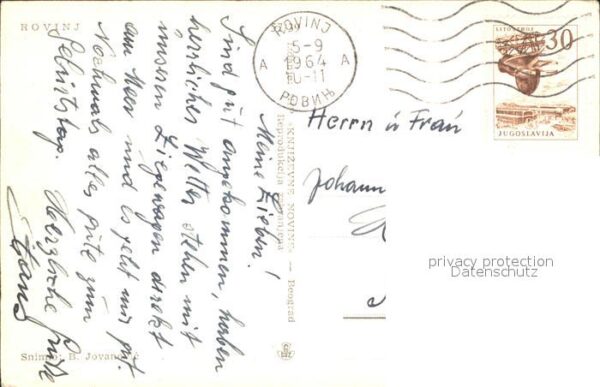 ROVINJ
Meine Lieben!
Sind gut angekommen, haben
herrliches Wetter stehen mit
unseren Liegewagen direkt
am Meer und es geht mir gut.
Nochmals alles gute zum
Geburtstag. Herzliche Grüße
Hans
Snimio: B. Jovanović
„KNJIŽEVNE NOVINE" — Beograd
Reprodukcija zabranjena
ROVINJ
5-9
A 1964 A
10-11
РОВИЊ
30
JUGOSLAVIJA
Herrn u Frau
Johann
privacy protection
Datenschutz